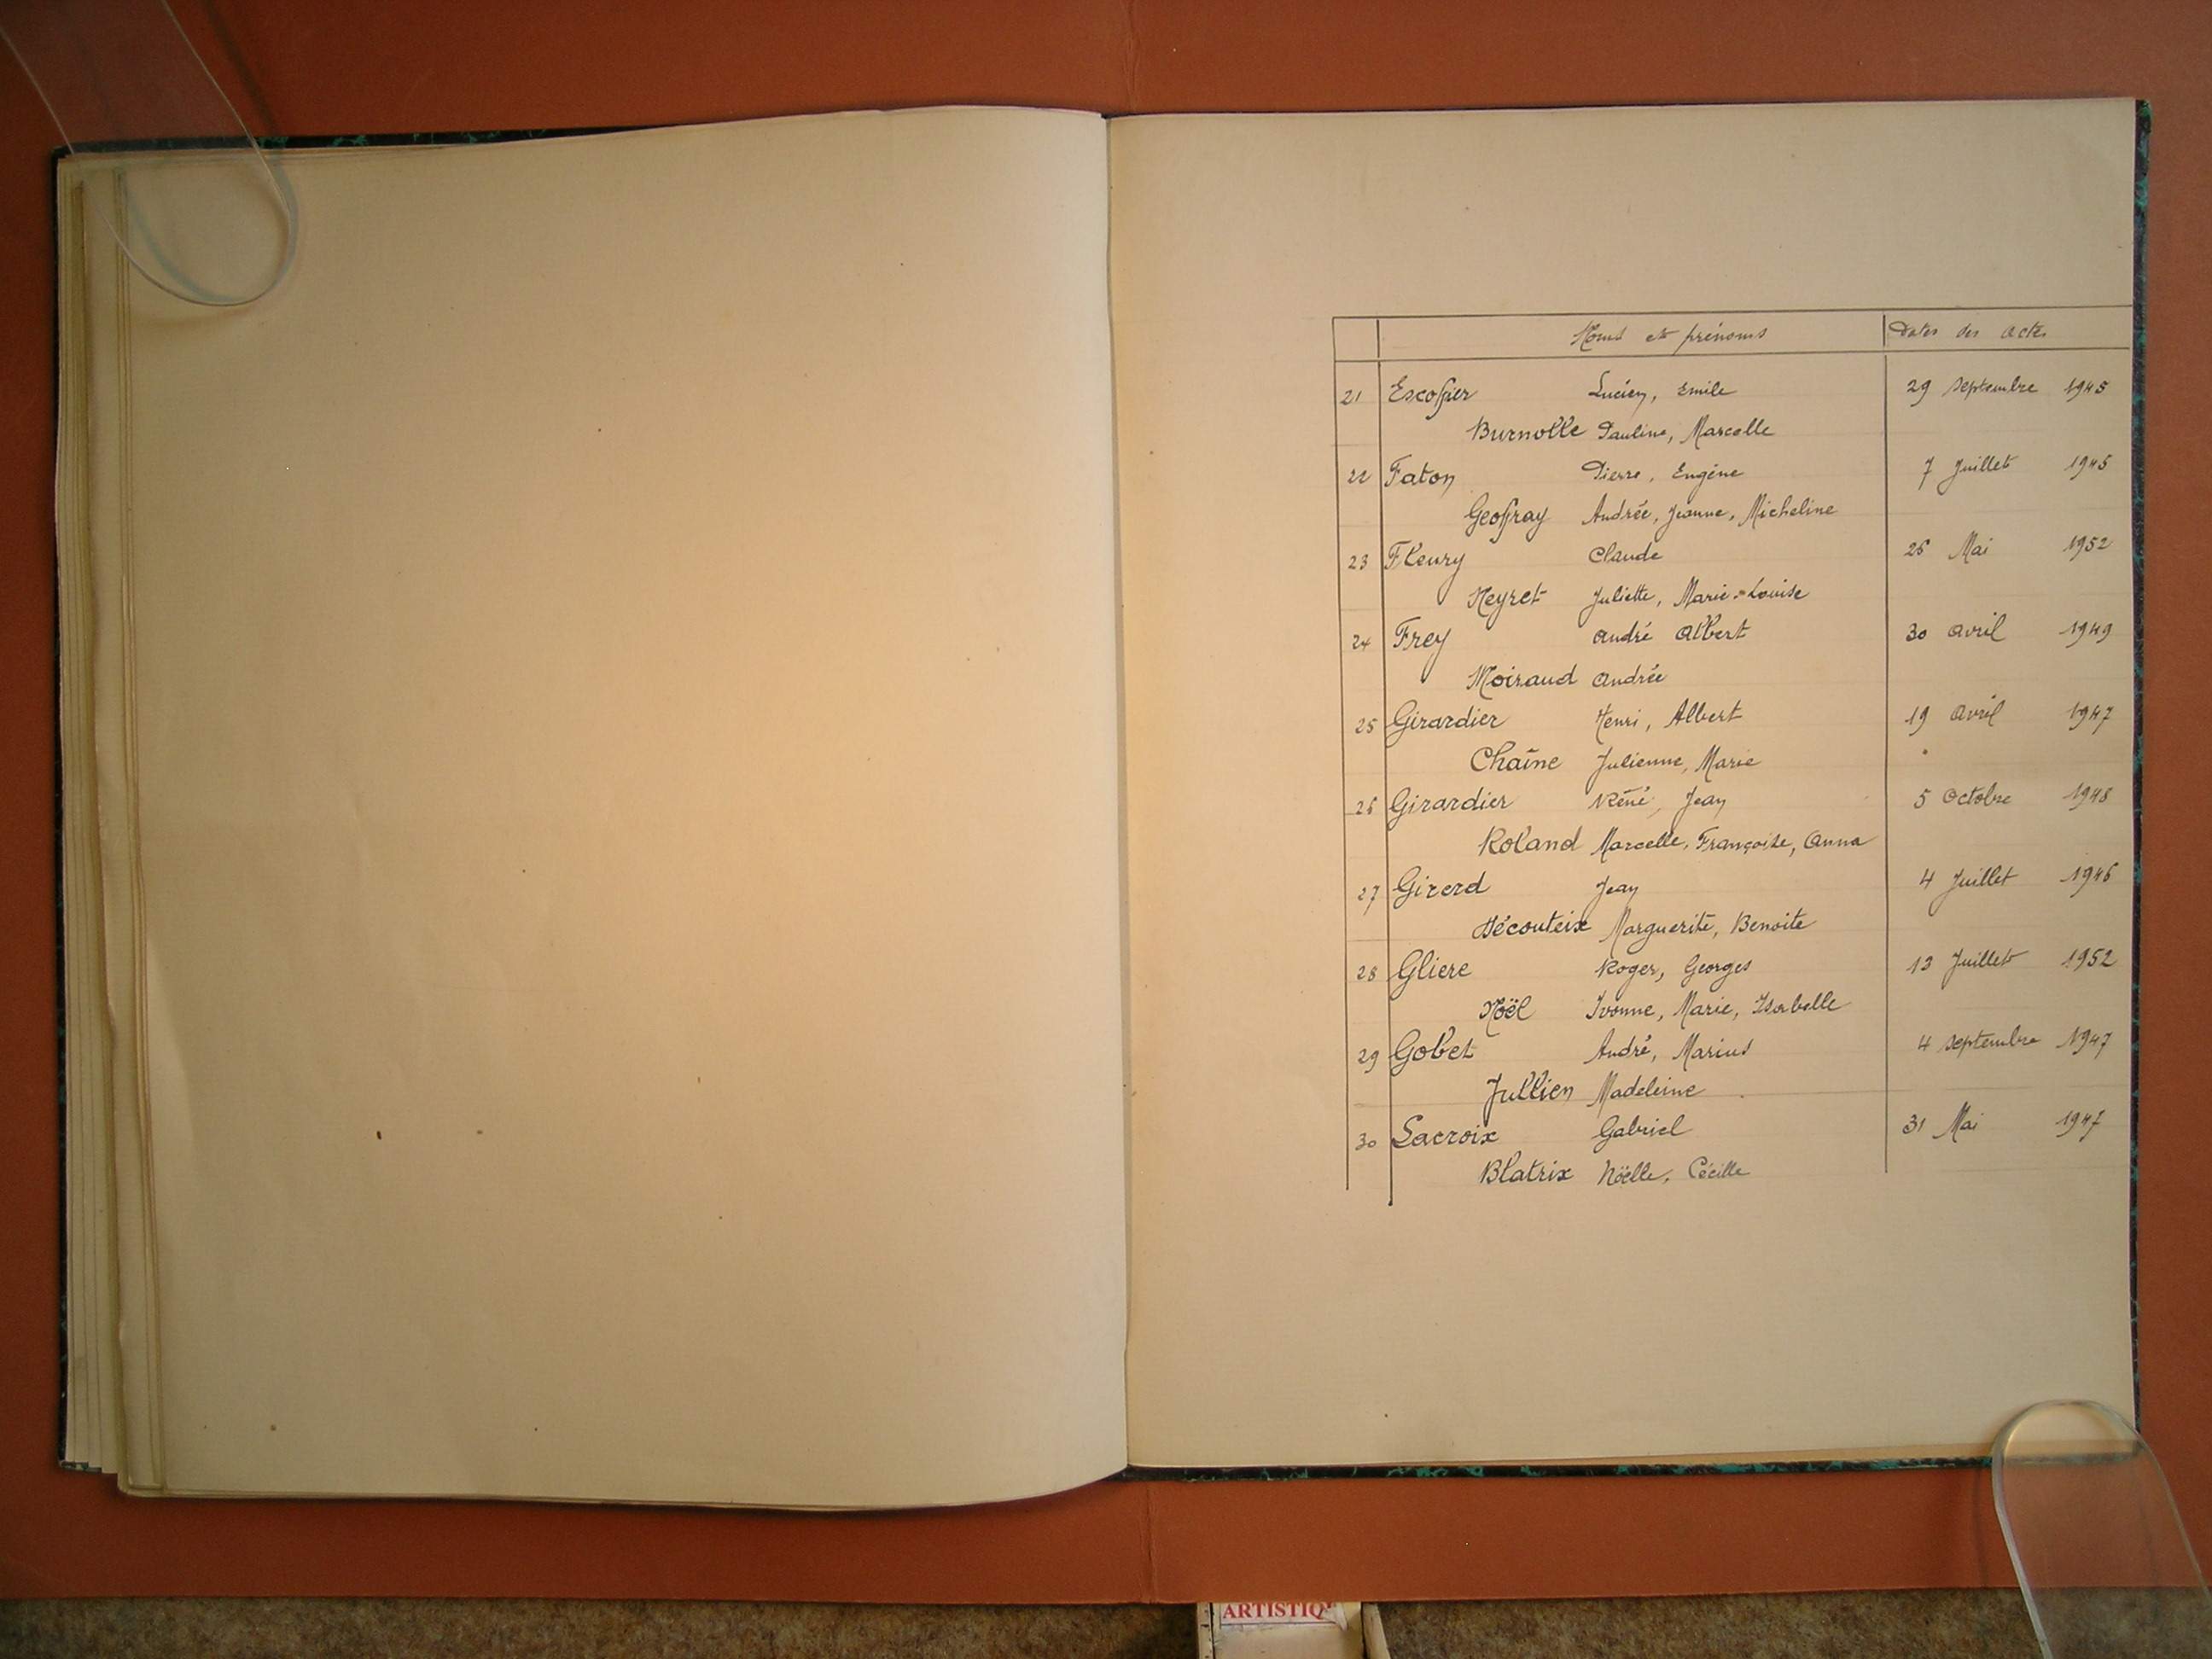 Noms et prénoms Dates des actes
21 Escoffier Lucien, Emile 29 Septembre 1945
Burnolle Pauline, Marcelle
22 Faton Pierre, Eugène 7 Juillet 1945
Geoffray Andrée, Jeanne, Micheline
23 Fleury Claude 25 Mai 1952
Neyret Juliette, Marie-Louise
24 Frey André Albert 30 avril 1949
Moiraud Andrée
25 Girardier Henri, Albert 19 avril 1947
Chaîne Julienne, Marie
26 Girardier Réné, Jean 5 Octobre 1948
Roland Marcelle, Françoise, Anna
27 Girerd Jean 4 Juillet 1946
Découteix Marguerite, Benoite
28 Gliere Roger, Georges 13 Juillet 1952
Noël Ivonne, Marie, Isabelle
29 Gobet André, Marius 4 septembre 1947
Jullien Madeleine
30 Lacroix Gabriel 31 Mai 1947
Blatrix Nöelle, Cécille
ARTISTIQ